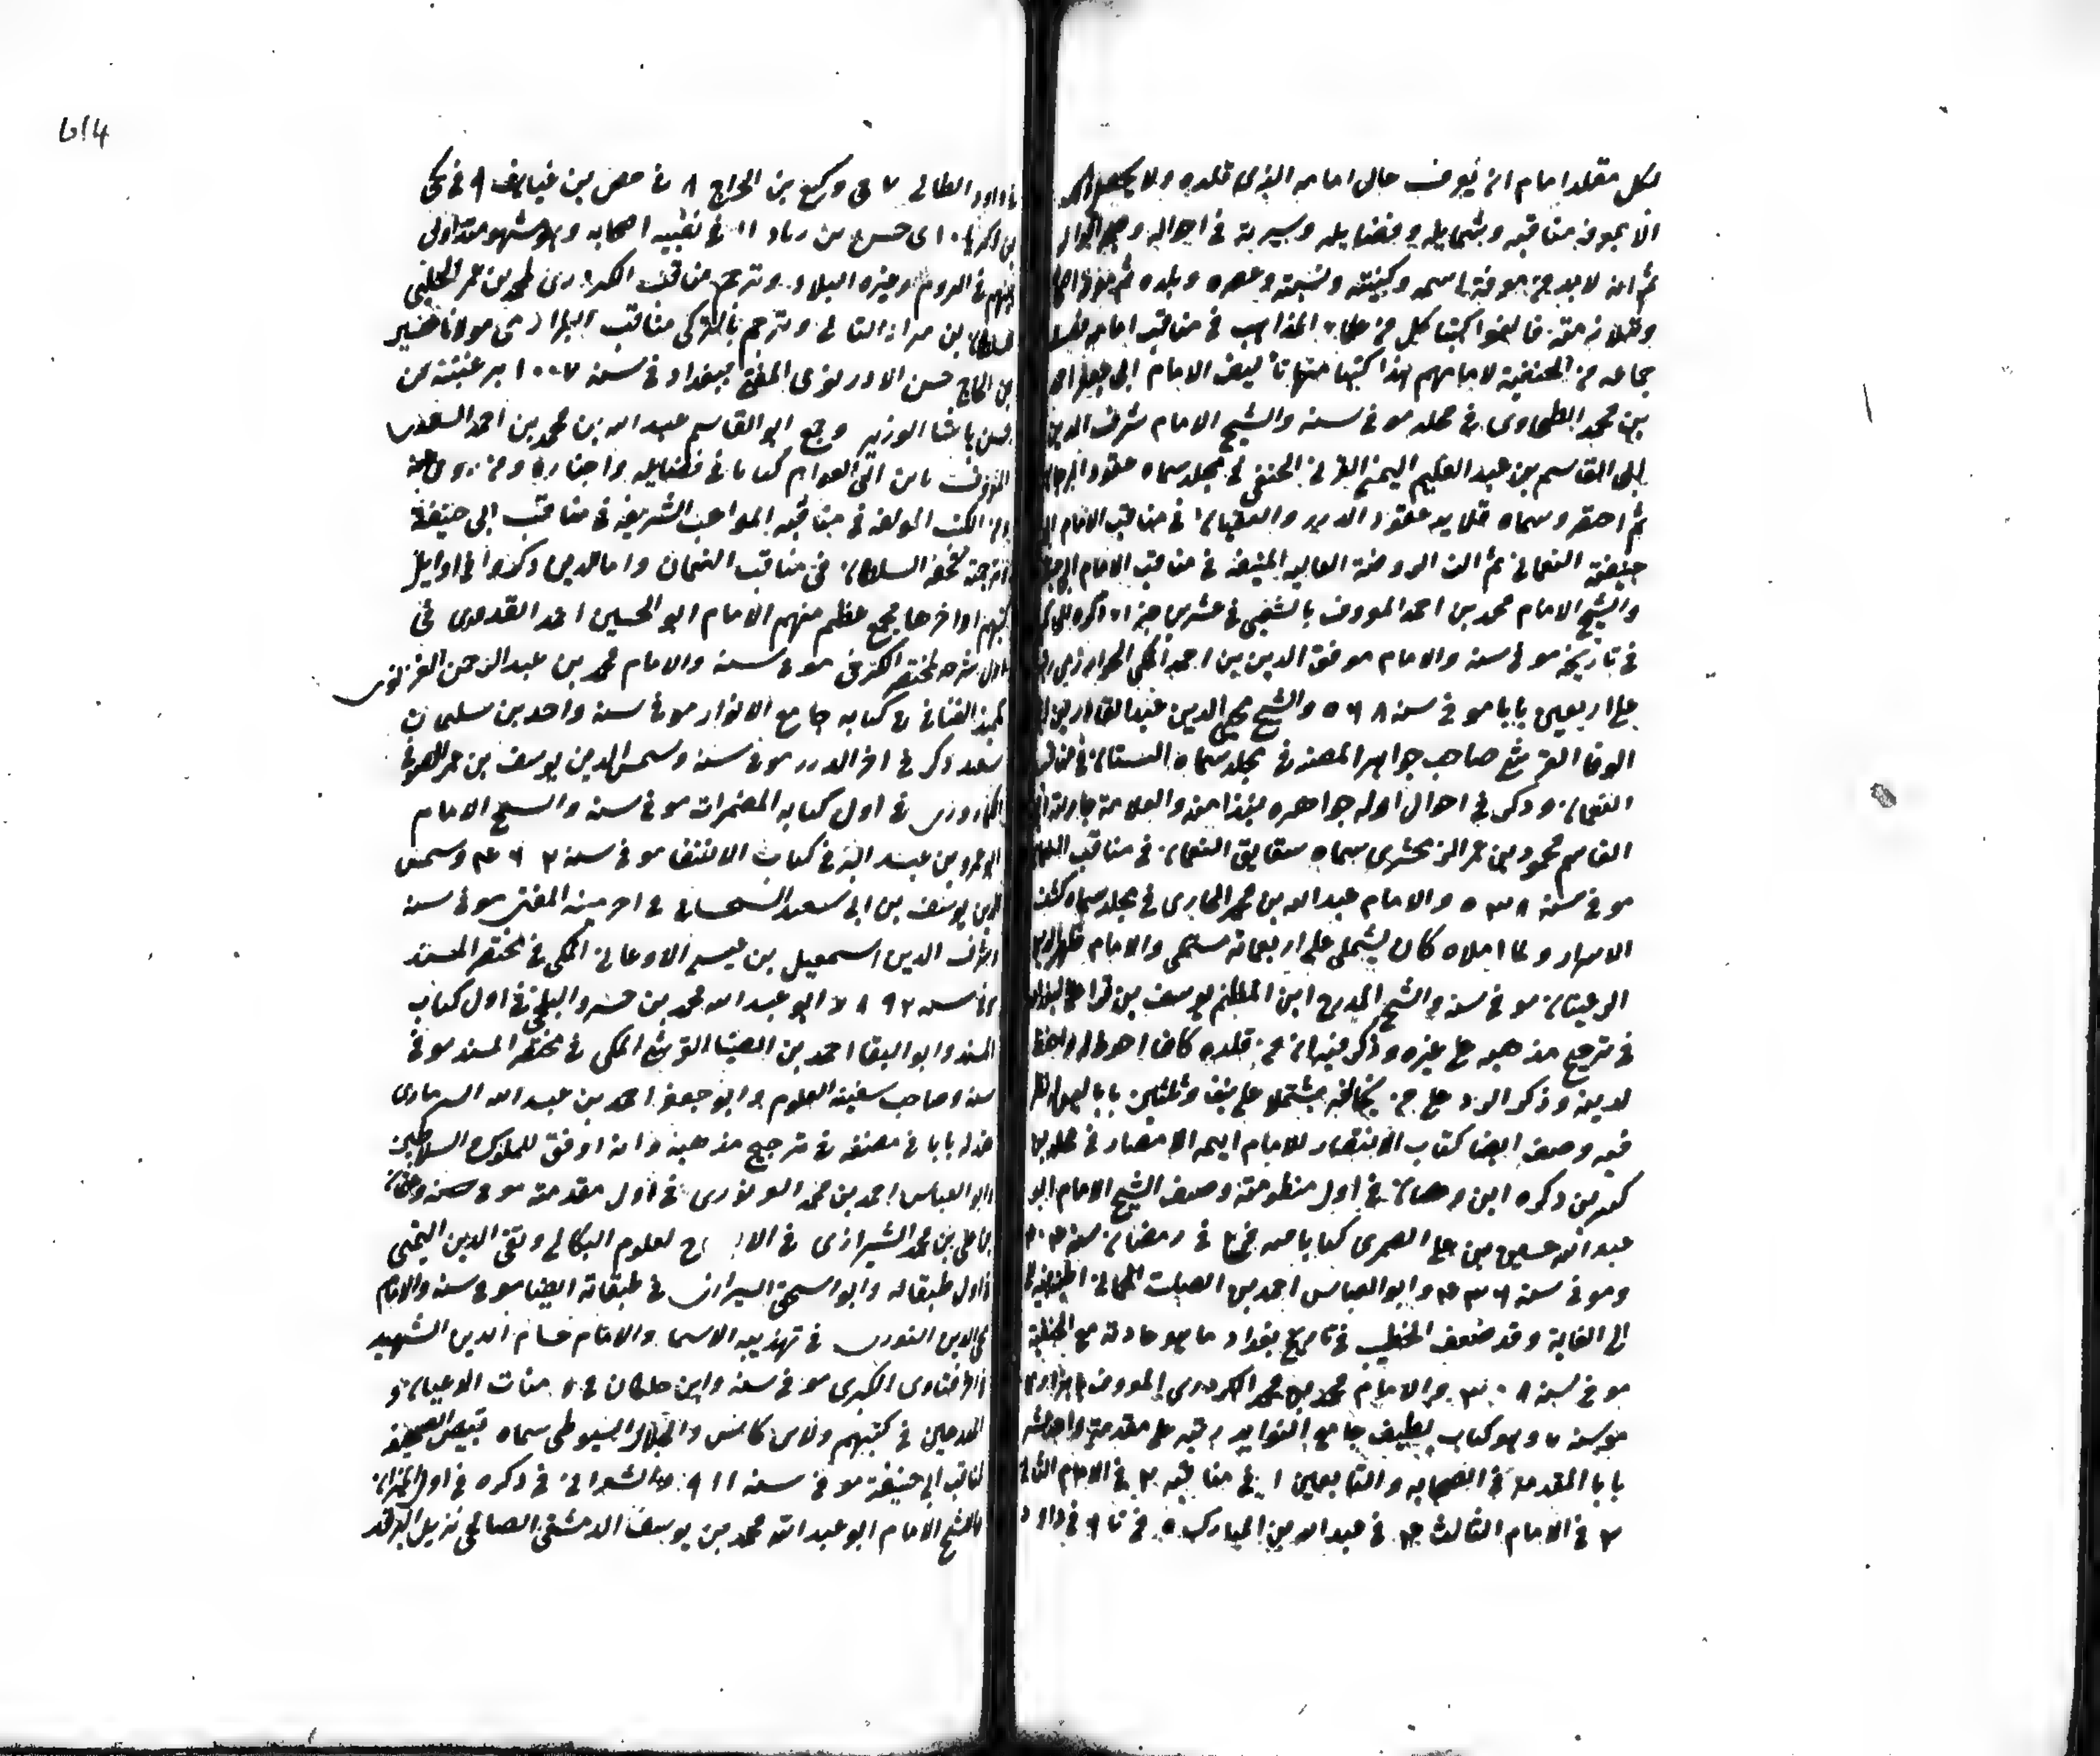 لكل مقلد امام ان يعرف حال امامه الذى قلده ولا يحصل
الا بمعرفة مناقبه وشمايله وفضايله وسيرته فى احواله وصحة اقواله
ثم انه لابد من معرفة اسمه وكنيته ونسبته وعصره وبلده ثم معرفة اصحابه
وتلامذته فالفوا كتبا كل من علماء المذاهب فى مناقب امامه
جماعه من الحنفية لامامهم هذا كتبا منها تأليف الامام ابى جعفر احمد
بن محمد الطحاوى فى مجلد موفى سنه والشيخ الامام شرف الدين
ابى القاسم بن عبد العليم اليمنى القرنى الحنفى فى مجلد سماه عقود المرجان
ثم اختصر وسماه قلايد عقود الدرر والعقيان فى مناقب الامام ابى
حنيفة النعمان ثم الف الروضة العاليه المنيفه فى مناقب الامام ابى حنيفة
والشيخ الامام محمد بن احمد المعروف بالشعبى فى عشرين جزء ذكره
فى تاريخه موفى سنه والامام موفق الدين بن احمد المكى الخوارزمى
على اربعين بابا موفى سنه ٥٦٨ والشيخ محيى الدين عبد القادر بن ابى
الوفا القرشى صاحب جواهر المضيه فى مجلد سماه البستان فى مناقب
النعمان وذكر فى احوال اوله جواهره نبذا منه والعلامة جار الله ابى
القاسم محمود بن عمر الزمخشرى سماه شقايق النعمان فى مناقب النعمان
موفى سنه ٥٣٨ والامام عبد الله بن محمد الحارثى فى مجلد سماه كشف
الاسرار ولما املاه كان يشمل على اربعمائة مستملى والامام ظهير الدين
المرغينانى موفى سنه والشيخ المدرج ابن المظفر يوسف بن قزا على البغدادى
فى ترجيح مذهبه على غيره وذكر فيه ان من قلده كان احوط له واحفظ
لدينه وذكر الرد على من يخالفه يشتمل على نيف وثلثين بابا
فيه وصنف ايضا كتاب الانتصار للامام ايمه الامصار فى مجلدين
كبيرين ذكره ابن وهبان فى اول منظومته وصنف الشيخ الامام ابو
عبد الله حسين بن على الصمرى كتابا فى رمضان سنه ٤٠٤
وموفى سنه ٤٣٦ وابو العباس احمد بن الصلت الحمانى اطنب فيه
الى الغاية وقد ضعف الخطيب فى تاريخ بغداد ما هو عادته مع الحنفية
موفى سنه ٣٠٨ والامام محمد بن محمد الكردرى المعروف بالبزازى
وهو كتاب لطيف جامع الفوايد رتبه على مقدمة واحد عشر
بابا المقدمة فى الصحابه والتابعين ١ فى مناقبه ٢ فى الامام الثانى
٣ فى الامام الثالث ٤ فى عبد الله بن المبارك ٥ فى ٦ فى داود
داود الطائى ٧ فى وكيع بن الجراح ٨ فى حفص بن غياث ٩ فى يحيى
بن زكريا ١٠ فى حسن بن زياد ١١ فى بقية اصحابه وهو مشهور متداول
بينهم فى الروم وغيره البلاد وترجم مناقب الكردرى لمحمد بن عمر الحلبى
للسلطان بن مراد الثانى وترجم بالتركى مناقب البزازى مولانا خضير
بن الحاج حسن الادرنوى المفتى ببغداد فى سنه ١٠٠٧ برغبته من
حسن باشا الوزير وجمع ابو القاسم عبد الله بن محمد بن احمد السعدى
المعروف بابن ابى العوام كتابا فى فضايله واخباره ومن روى عنه
ومن الكتب المؤلفه فى مناقبه المواهب الشريفه فى مناقب ابى حنيفة
وترجمة تحفة السلطان فى مناقب النعمان واما الذين ذكروا فى اوايل
كتبهم اواخرها فجمع عظم منهم الامام ابو الحسين احمد القدورى فى
اول شرحه لمختصر الكرخى موفى سنه والامام محمد بن عبد الرحمن الغزنوى
تلميذ الكاسانى فى كتابه جامع الانوار موفى سنه واحمد بن سليمان
سعد ذكر فى اخر الدرر موفى سنه وشمس الدين يوسف بن عمر الصوفى
الكازرونى فى اول كتابه المضمرات موفى سنه والشيخ الامام
ابو عمرو بن عبد البر فى كتاب الانتقا موفى سنه ٤٦٣ وشمس
الدين يوسف بن ابى سعيد السجستانى فى اخر منية المفتى موفى سنه
وشرف الدين اسمعيل بن عيسى الاوغانى المكى فى مختصر المسند
موفى سنه ٨٩٢ وابو عبد الله محمد بن خسرو البلخى فى اول كتاب
المسند وابو البقا احمد بن الضيا القرشى المكى فى مختصر المسند موفى
سنه وصاحب سفينة العلوم وابو جعفر احمد بن عبد الله السرمارى
عقد له بابا فى مصنفه فى ترجيح مذهبه وانه اوفق للملوك والسلاطين
وابو العباس احمد بن محمد الغزنوى فى اول مقدمته موفى سنه
على بن محمد الشيرازى فى الا لعلوم البكالى وتقى الدين التميمى
فى اول طبقاته وابو اسحق الشيرازى فى طبقاته ايضا موفى سنه والامام
محى الدين النووى فى تهذيب الاسما والامام حسام الدين الشهيد
فى اخر فتاوى الكبرى موفى سنه وابن خلكان فى وفيات الاعيان و
المؤرخين فى كتبهم والجلال السيوطى سماه تبييض الصحيفه
لمناقب ابى حنيفة موفى سنه ٩١١ والشعرانى فى ذكره فى اول الميزان
والشيخ الامام ابو عبد الله محمد بن يوسف الدمشقى الصالحى نزيل البرقوقيه
614